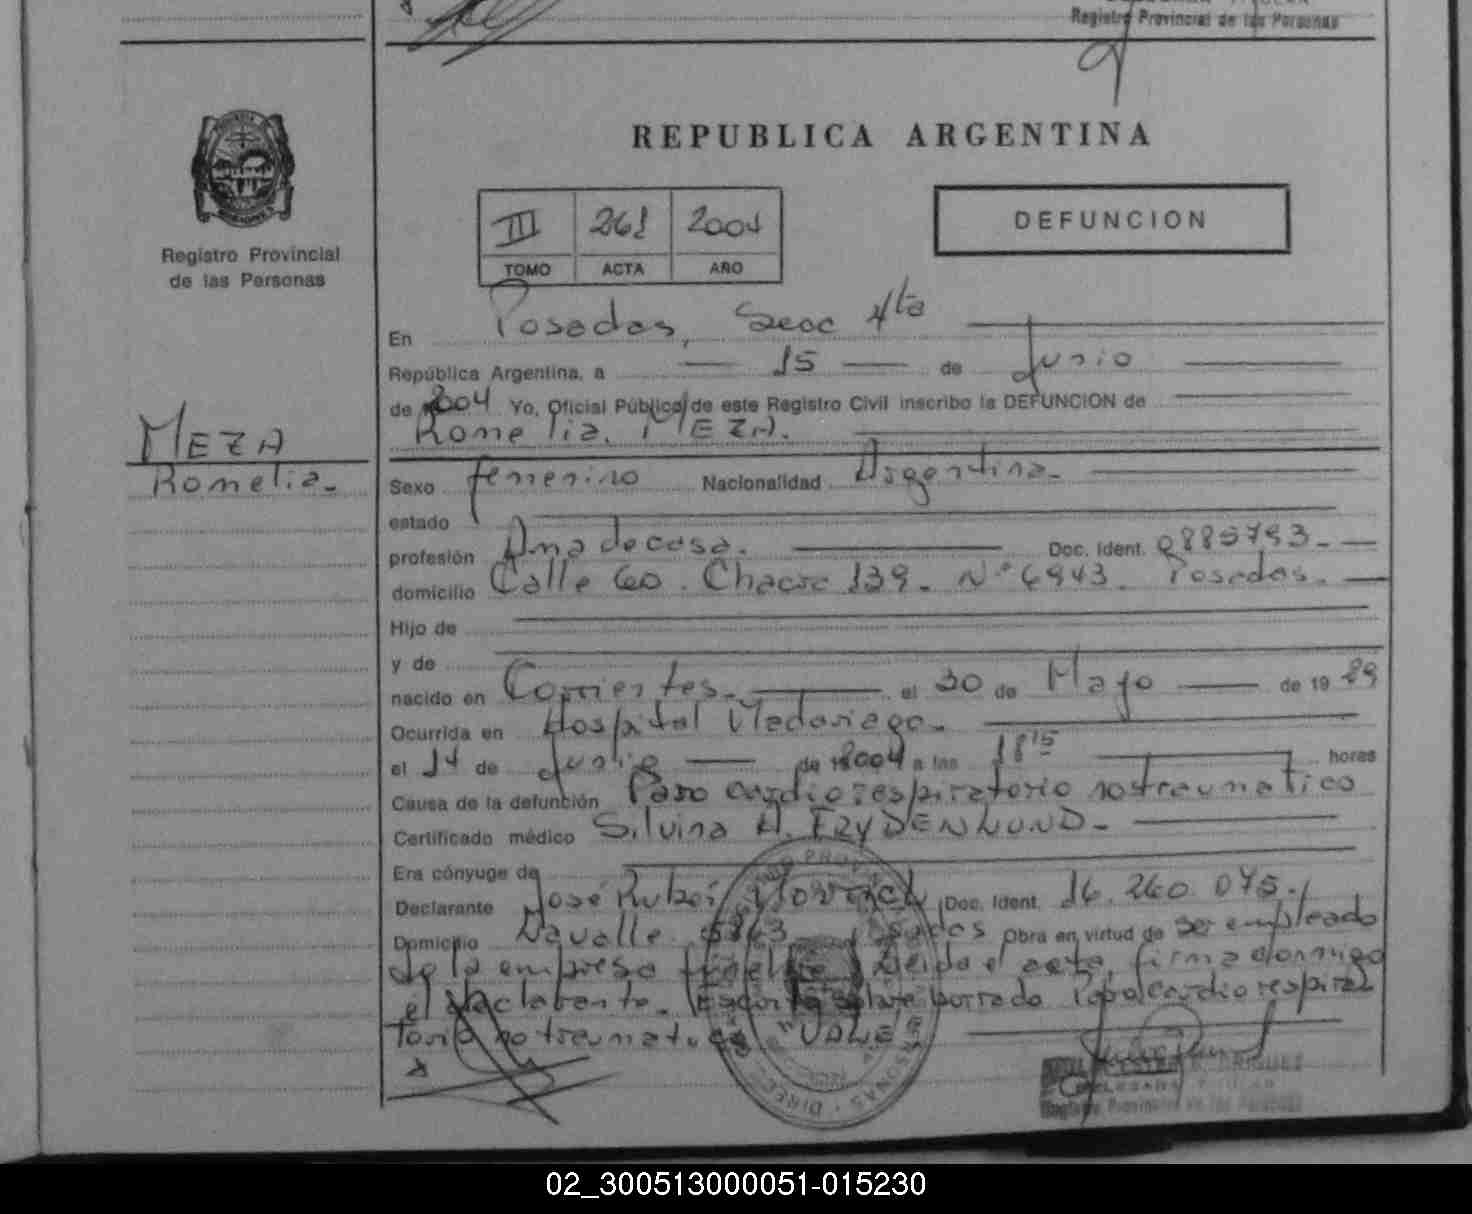 Registro Provincial de las Personas
REPUBLICA ARGENTINA
III 261 2004
TOMO ACTA AÑO
DEFUNCION
Registro Provincial
de las Personas
MEZA
Romelia.
En Posadas, Secc 4ta
República Argentina, a 15 de Junio
de 2004 Yo, Oficial Público de este Registro Civil inscribo la DEFUNCION de
Romelia. MEZA.
Sexo femenino Nacionalidad Argentina.
estado
profesión Ama de casa. Doc. Ident.
domicilio Calle 60. Chacra 139. Nº 6943. Posadas.
Hijo de
y de
nacido en Corrientes. el 30 de Mayo de 19
Ocurrida en Hospital Madariaga.
el 14 de Junio de 2004 a las 18 15 horas
Causa de la defunción Paro cardiorespiratorio no traumatico
Certificado médico Silvina A. FRYDENLUND.
Era cónyuge de
Declarante José Rubén Doc. Ident. 16.260.075.
Domicilio Lavalle Posadas Obra en virtud de ser empleado
de la empresa Leida el acta, firma conmigo
el declarante. Escrito sobre borrado Paro cardiorespira
torio no traumatico VALE
Registro Provincial de las Personas
02_300513000051-015230